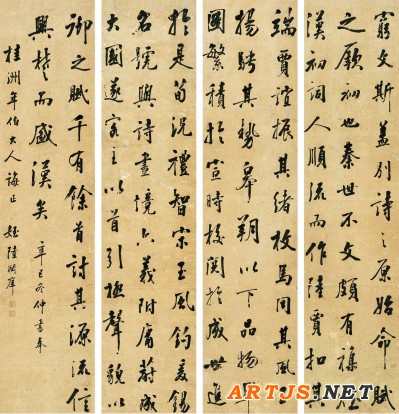 窮文斯蓋別詩之原始命賦
之厥初也秦世不文頗有襍賦
漢初詞人順流而作陸賈扣其
端賈誼振其緒枚馬同其風王
揚騁其勢皋朔以下品物畢
圖繁積於宣時校閱於成世進
於是荀況禮智宋玉風釣爰錫
名號與詩畫境六義附庸蔚成
大國遂客主以首引極聲貌以
御之賦千有餘首討其源流信
興楚而盛漢矣
辛巳冬仲書奉
桂洲年伯大人誨正 姪陸潤庠
ARTJS.NET